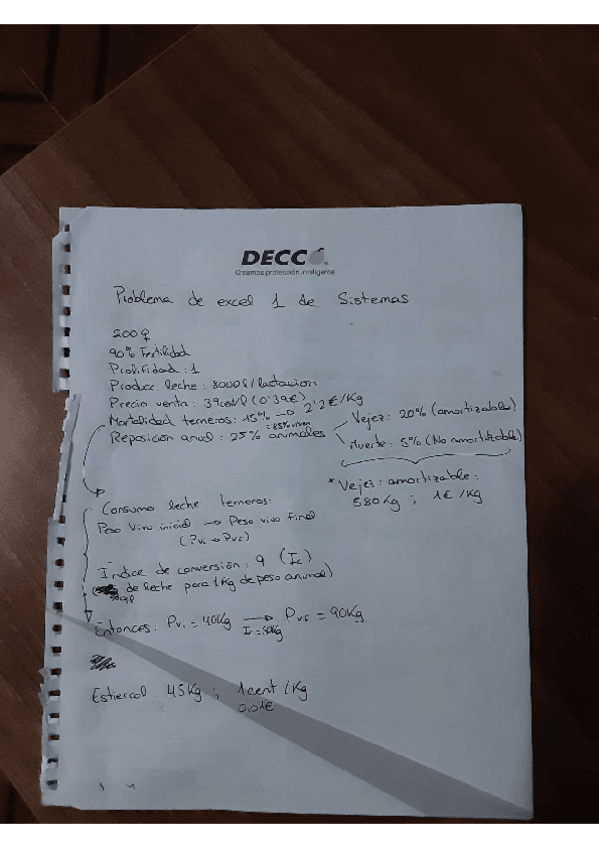 DECCO
Creamos protección inteligente
Problema de excel 1 de Sistemas
200 ♀
90% Fertilidad
Prolifidad : 1
Producc. leche : 8000 l / lactación
Precio venta : 39 cent/l (0'39€)
Mortalidad terneros : 15% → 2'2 €/Kg
= 85% viven
Reposición anual : 25% animales
Vejez : 20% (amortizable)
Muerte : 5% (No amortizable)
* Vejez : amortizable :
580Kg ; 1€/Kg
Consumo leche terneros:
Peso Vivo inicial → Peso vivo Final
(Pvi → Pvf)
Índice de conversión : 9 (Ic)
de leche para 1Kg de peso animal)
Entonces : Pvi = 40Kg → Pvf = 90Kg
Estiercol : 45Kg ; 1cent/Kg
0,01€